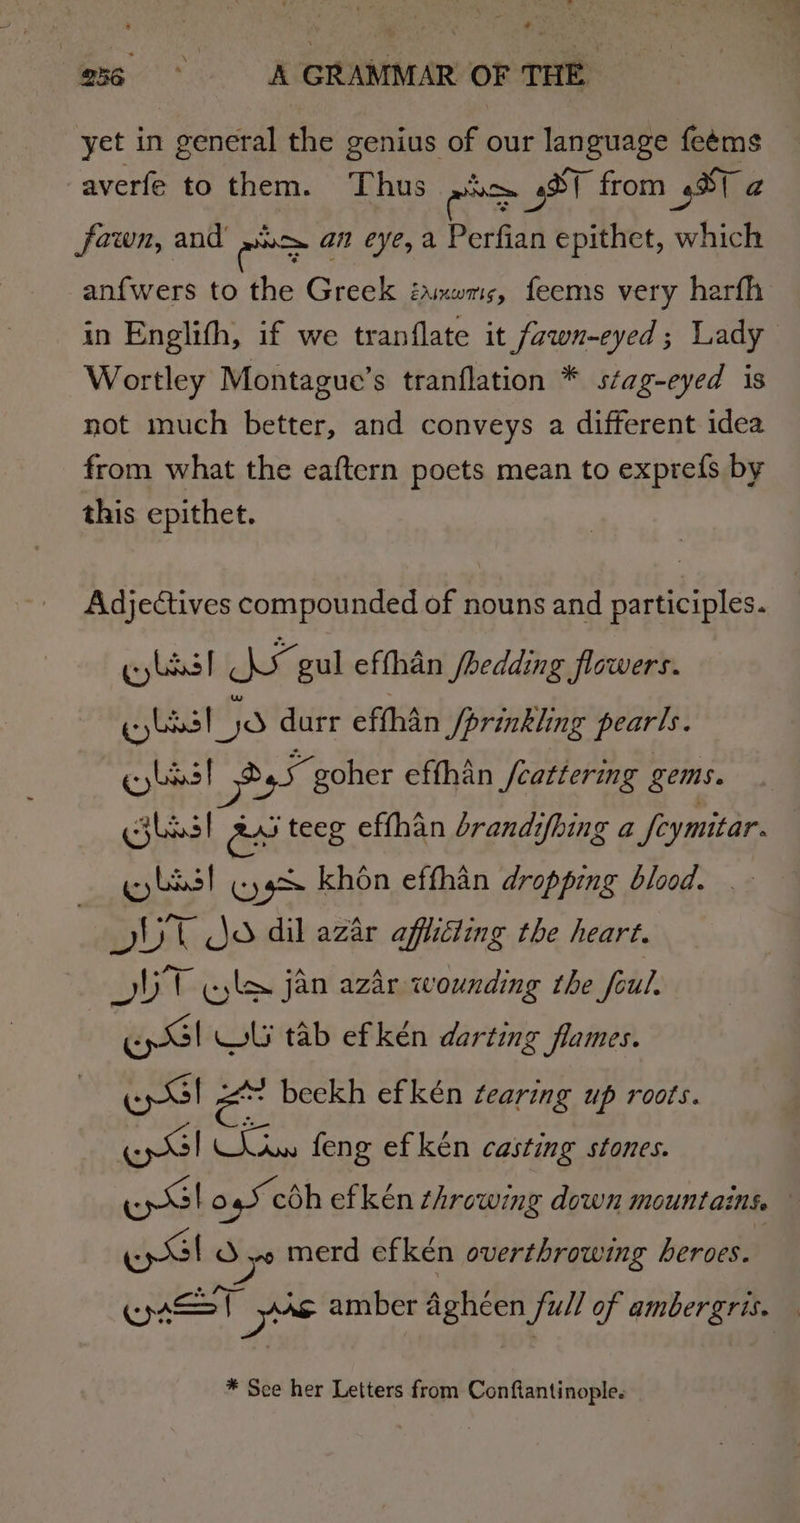 256 A GRAMMAR OF THE
yet in general the genius of our language feems
averfe to them. Thus آهو چشم from آهو a
fawn, and چشم an eye, a Perfian epithet, which
anfwers to the Greek ἑλικωπις, feems very harfh
in Englifh, if we tranflate it fawn-eyed; Lady
Wortley Montague's tranflation * stag-eyed is
not much better, and conveys a different idea
from what the eaftern poets mean to exprefs by
this epithet.
Adjectives compounded of nouns and participles.
گل افشان gul effhân fhedding flowers.
در افشان durr effhân fprinkling pearls.
گوهر افشان goher effhân fcattering gems.
تیغ افشان teeg effhân brandifhing a fcymitar.
خون افشان khôn effhân dropping blood.
دل آزار dil azâr afflicting the heart.
جان آزار jân azâr wounding the foul.
تاب افکن tâb efkén darting flames.
بیخ افکن beekh efkén tearing up roots.
سنگ افکن feng efkén casting stones.
کوه افکن côh efkén throwing down mountains.
مرد افکن merd efkén overthrowing heroes.
عنبر آگین amber âghéen full of ambergris.
* See her Letters from Conftantinople.